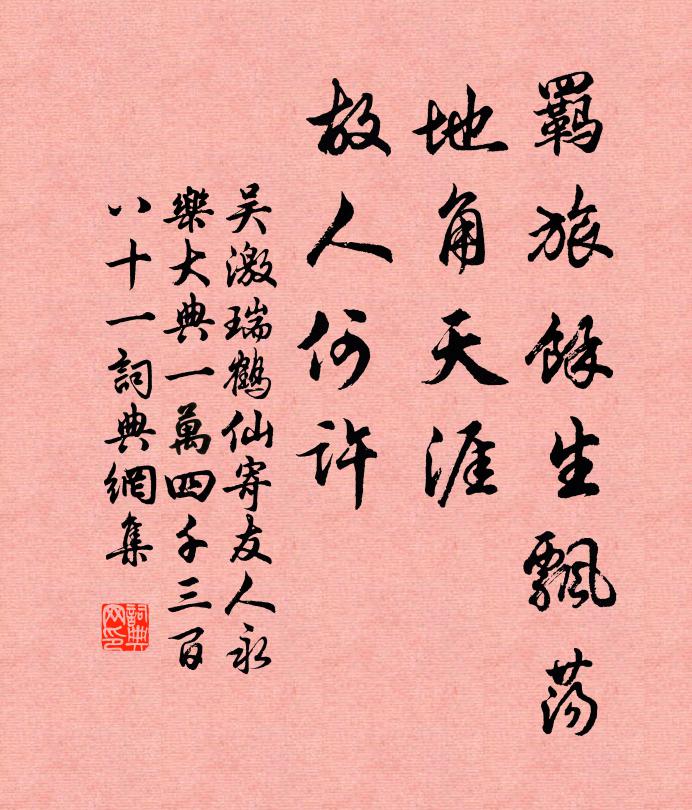 羈旅餘生飄蕩
地角天涯
故人何許
吳激瑞鶴仙寄友人永
樂大典一萬四千三百
八十一詞典網集
詞典網印